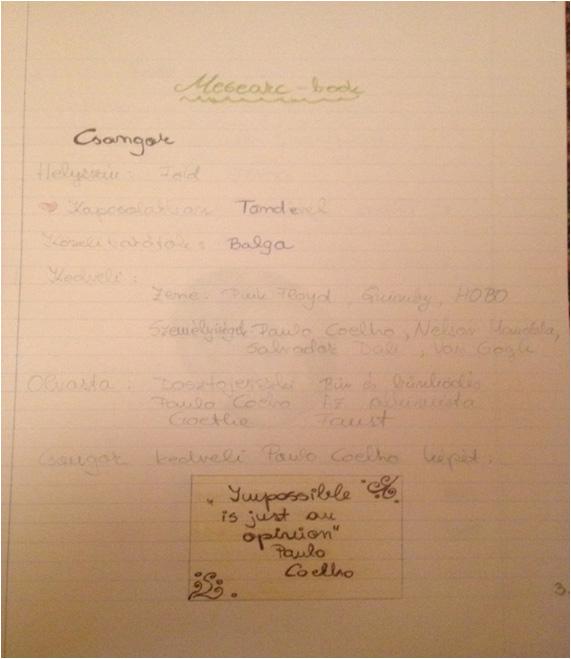 Mesearc-book
Csongor
Helyszín: Föld
Kapcsolatban Tünderrel
Közeli barátok: Balga
Kedveli:
Zene: Pink Floyd, Quimby, HOBO
Személyiségek Paulo Coelho, Nelson Mandela,
Salvador Dali, Van Gogh
Olvasta: Dosztojevszki Bűn és bűnhődés
Paulo Coelho Az alkimista
Goethe Faust
Csongor kedveli Paulo Coelho képét:
„Impossible
is just an
opinion"
Paulo
Coelho
3.